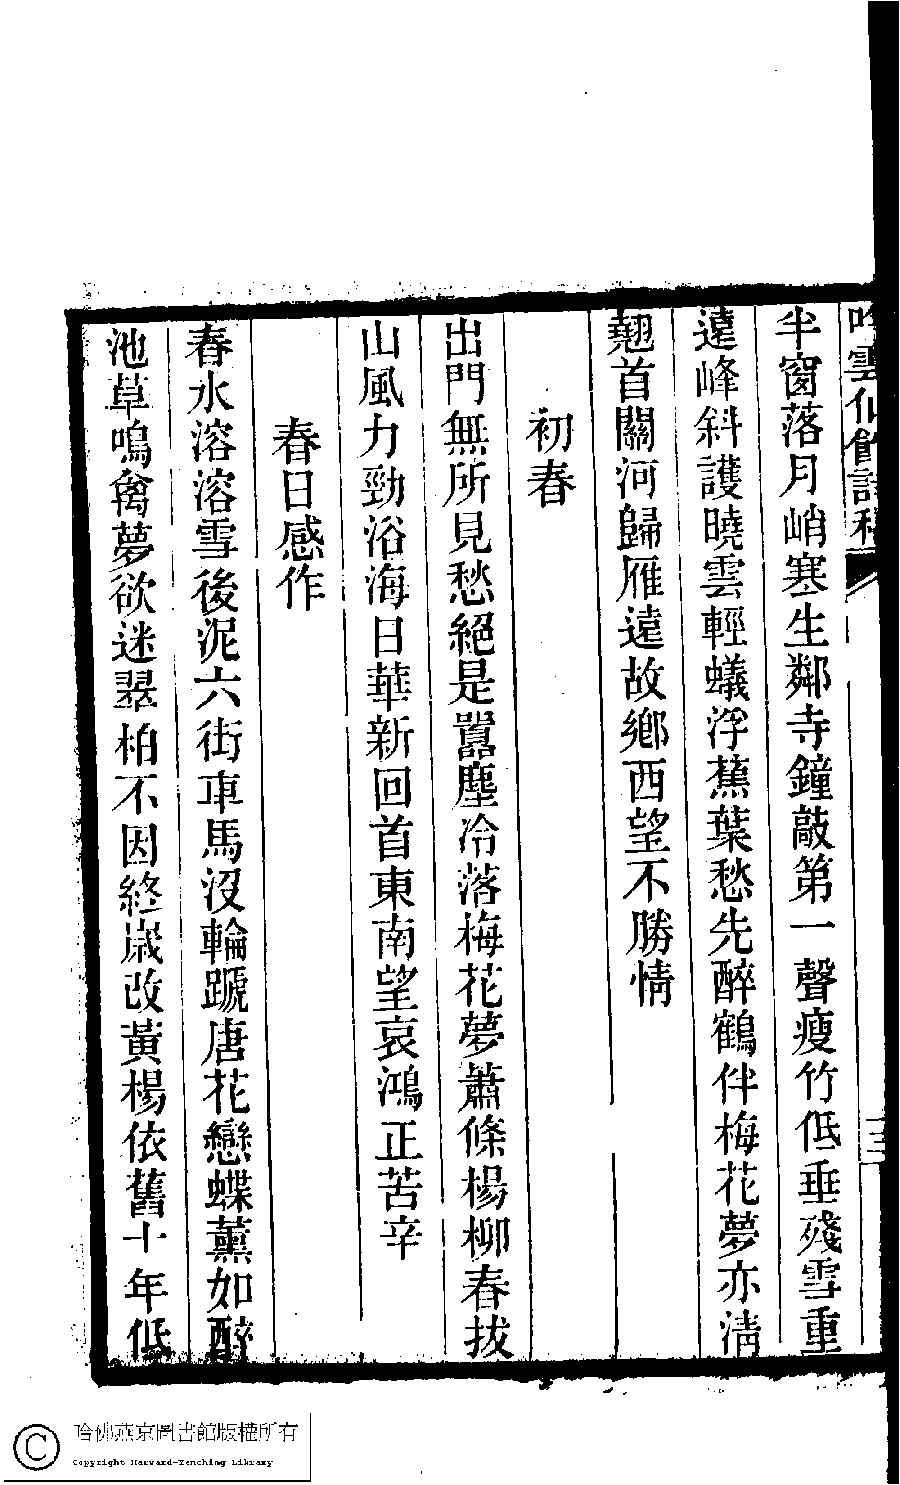 吟雲仙館詩稿
半窗落月峭寒生鄰寺鐘敲第一聲瘦竹低垂殘雪重
遠峰斜護曉雲輕蟻浮蕉葉愁先醉鶴伴梅花夢亦淸
翹首關河歸雁遠故鄕西望不勝情
初春
出門無所見愁絕是囂塵冷落梅花夢蕭條楊柳春拔
山風力勁浴海日華新回首東南望哀鴻正苦辛
春日感作
春水溶溶雪後泥六街車馬沒輪蹏唐花戀蝶薰如醉
池草鳴禽夢欲迷翠柏不因終歲改黃楊依舊十年低
哈佛燕京圖書館版權所有
Copyright Harvard-Yenching Library